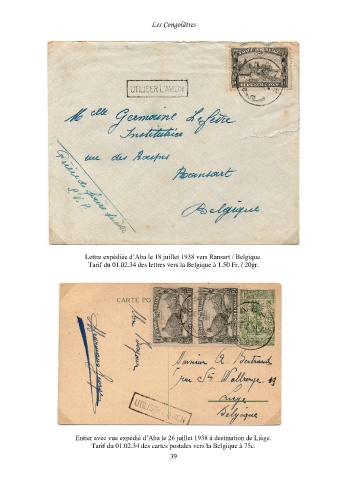 Les Congolâtres
UTILISER L'AVION
Melle Germaine Lefèvre
Institutrice
rue des Raspes
Ransart
Belgique
Prière de faire suivre
S.V.P.
Lettre expédiée d'Aba le 18 juillet 1938 vers Ransart / Belgique.
Tarif du 01.02.34 des lettres vers la Belgique à 1.50 Fr. / 20gr.
CARTE PO
Monsieur A. Bertrand
rue Ste Walburge
Liège
Belgique
UTILISER L'AVION
Entier avec vue expédié d'Aba le 26 juillet 1938 à destination de Liège.
Tarif du 01.02.34 des cartes postales vers la Belgique à 75c.
39